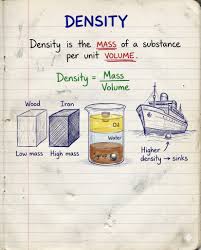 DENSITY
Density is the MASS of a substance
per unit VOLUME.
Density = Mass
Volume
Wood
Iron
Low mass
High mass
Oil
Water
Higher
density → sinks